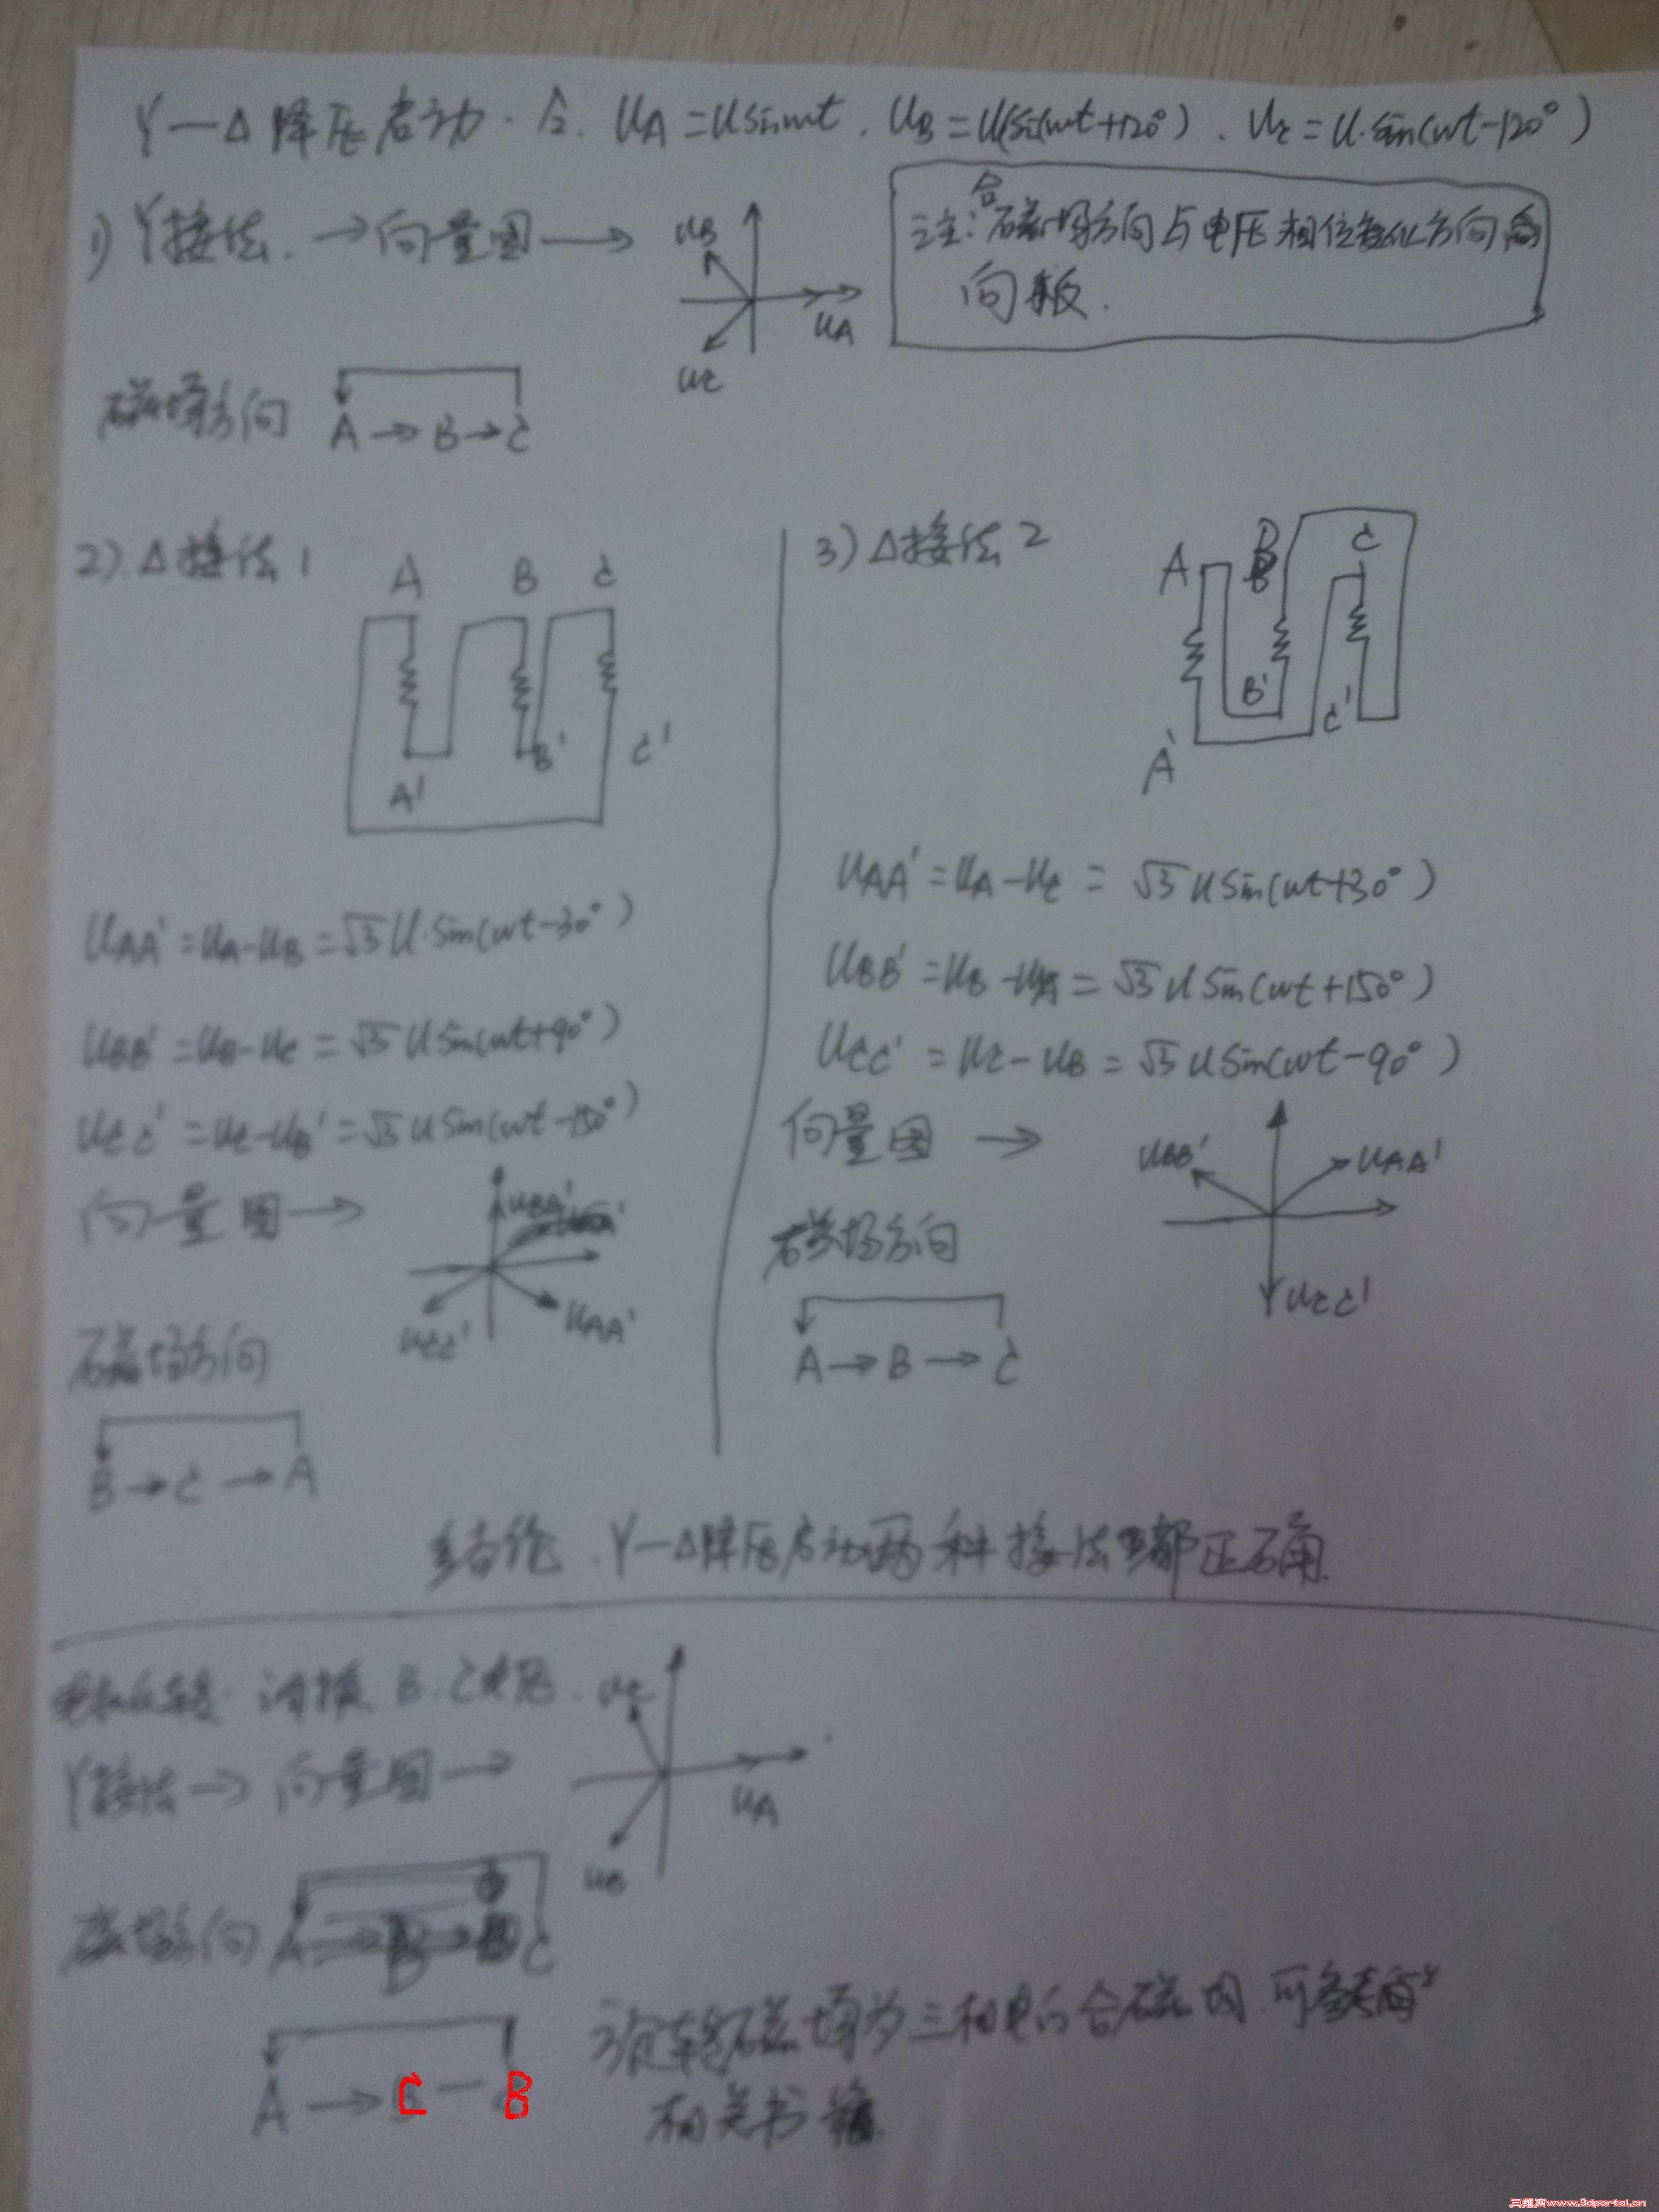 Y—Δ降压启动. 令. UA=Usinωt, UB=Usin(ωt+120°), UC=U·sin(ωt-120°)
1) Y接法. →向量图→
UB
UA
UC
注: 合磁场方向与电压相位变化方向
向相反.
磁场方向 A→B→C
2).Δ接法1
A B C
A' B' C'
UAA'=UA-UB=√3U·Sin(ωt-30°)
UBB'=UB-UC=√3USin(ωt+90°)
UCC'=UC-UB'=√3USin(ωt-150°)
向量图→
UBB'
UCC' UAA'
磁场方向
B→C→A
3)Δ接法2
A B C
B' C'
A'
UAA'=UA-UC=√3USin(ωt+30°)
UBB'=UB-UA=√3USin(ωt+150°)
UCC'=UC-UB=√3USin(ωt-90°)
向量图→
UBB' UAA'
UCC'
磁场方向
A→B→C
结论. Y—Δ降压启动两种接法都正确.
电机反转. 调换B.C
Y接法→向量图→
UC
UA
UB
磁场方向 A C
A→C—B
旋转磁场为三相电的合磁场.可参看
相关书籍.
三维网www.3dportal.cn